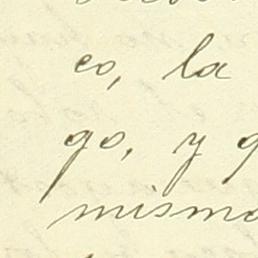 co, la
go, y
misma